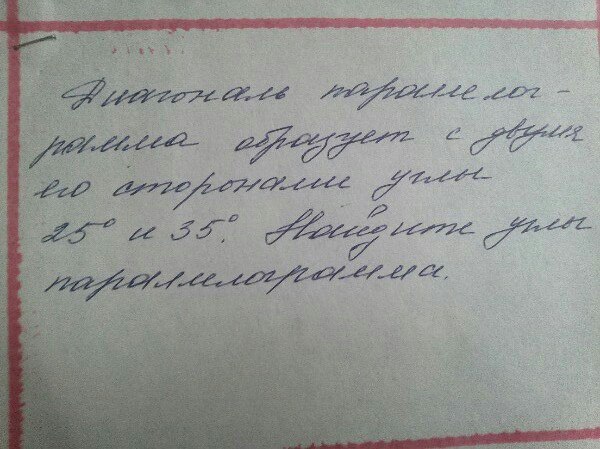 Диагональ параллелог-
рамма образует с двумя
его сторонами углы
25° и 35°. Найдите углы
параллелограмма.